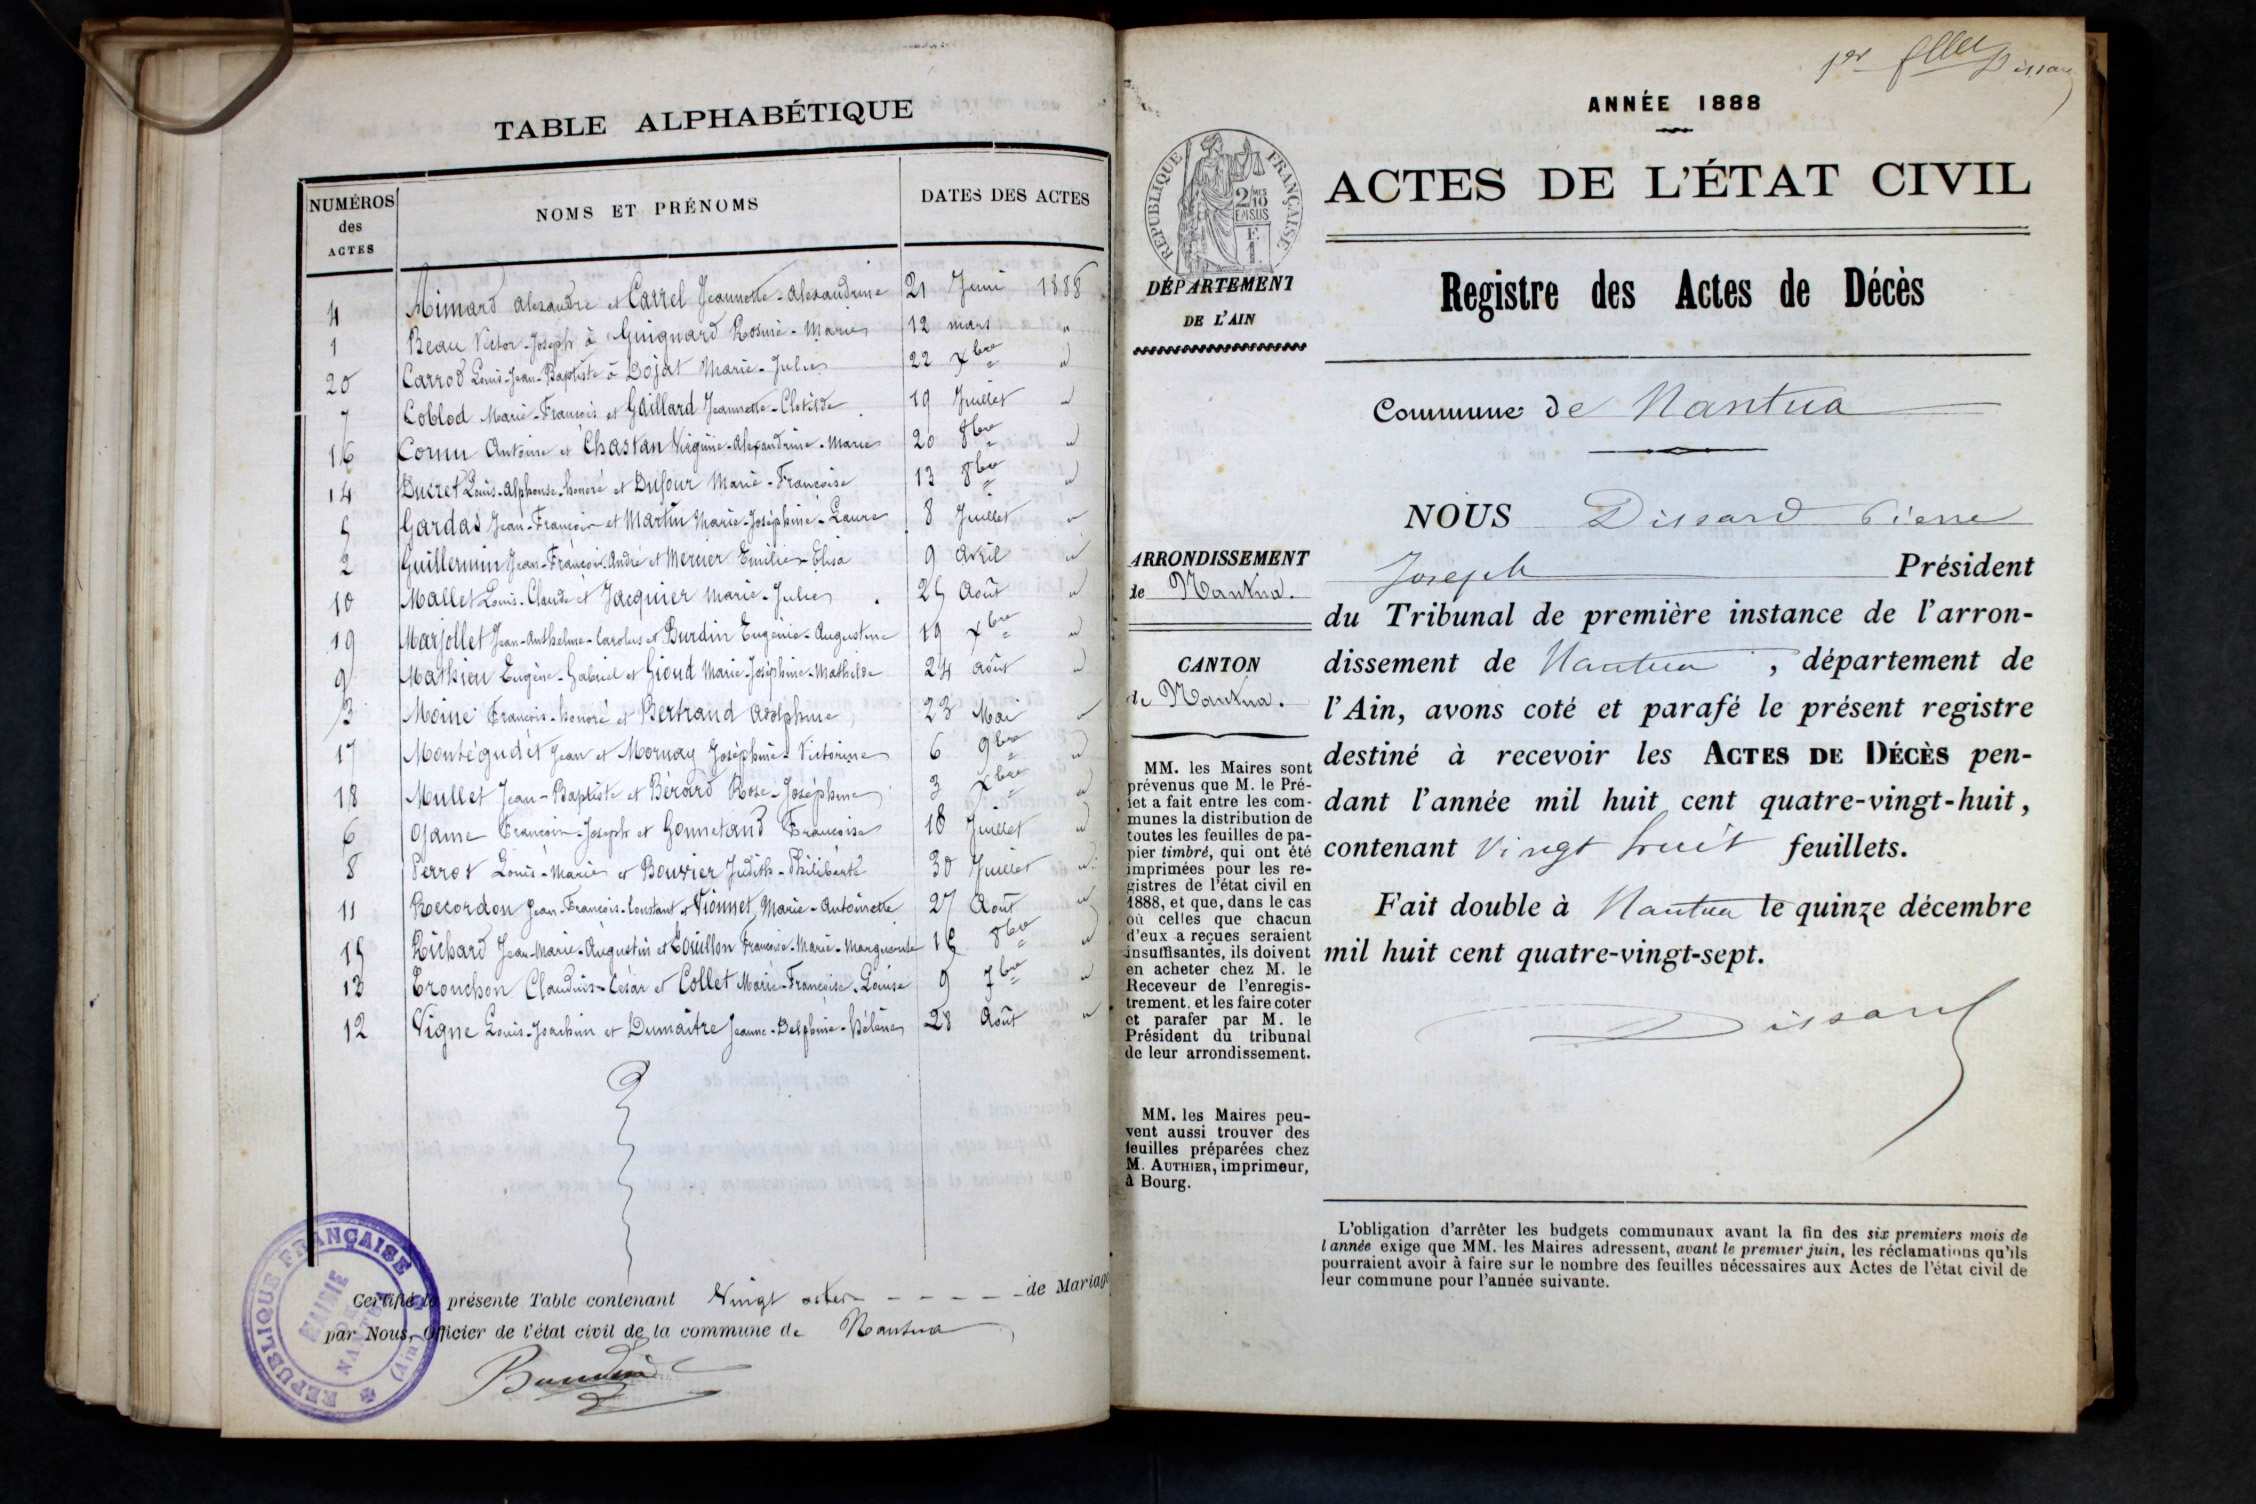 TABLE ALPHABÉTIQUE
NUMÉROS
des
ACTES
NOMS ET PRÉNOMS
DATES DES ACTES
4 Aimard Alexandre et Carrel Jeannette-Alexandrine 21 Juin 1888
1 Beau Victor-Joseph à Guignard Rosine-Marie 12 mars "
20 Carrod Louis-Jean-Baptiste à Dojat Marie-Julie 22 Xbre "
7 Coblod Marie-François et Gaillard Jeannette-Clotilde 19 Juillet "
16 Cornu Antoine et Chastan Virginie-Alexandrine-Marie 20 8bre "
14 Ducret Louis-Alphonse-honoré et Dufour Marie-Françoise 13 8bre "
5 Gardas Jean-François et Martin Marie-Joséphine-Laure 8 Juillet "
2 Guillermin Jean-François-André et Mercier Emilie-Elisa 9 Avril "
10 Mallet Louis-Claude et Jacquier Marie-Julie 25 Août "
19 Marjollet Jean-Anthelme-Carolus et Burdin Eugénie-Augustine 19 Xbre "
9 Mathieu Eugène-Gabriel et Gioud Marie-Joséphine-Mathilde 24 Août "
3 Moine François-honoré et Bertrand Adolphine 23 Mai "
17 Montégudet Jean et Mornay Joséphine-Victorine 6 9bre "
18 Mullet Jean-Baptiste et Bérard Rose-Joséphine 3 Xbre "
6 Ojame François-Joseph et Gonnetand Françoise 18 Juillet "
8 Perrot Louis-Marie et Bouvier Judith-Philiberte 30 Juillet "
11 Recordon Jean-François-Constant et Vionnet Marie-Antoinette 27 Août "
15 Richard Jean-Marie-Augustin et Touillon Françoise-Marie-Marguerite 15 8bre "
13 Tronchon Claudius-César et Collet Marie-Françoise-Louise 9 7bre "
12 Vigne Louis-Joachim et Dumaître Jeanne-Delphine-Hélène 28 Août "
Certifié la présente Table contenant Vingt actes de Mariage
par Nous, Officier de l'état civil de la commune de Nantua
REPUBLIQUE FRANÇAISE
MAIRIE
DE
NANTUA
(Ain)
1er Dissard
ANNÉE 1888
ACTES DE L'ÉTAT CIVIL
Registre des Actes de Décès
REPUBLIQUE FRANÇAISE
2 MES
10
EN SUS
F.
1.
DÉPARTEMENT
DE L'AIN
ARRONDISSEMENT
de Nantua.
CANTON
de Nantua.
MM. les Maires sont
prévenus que M. le Pré-
fet a fait entre les com-
munes la distribution de
toutes les feuilles de pa-
pier timbré, qui ont été
imprimées pour les re-
gistres de l'état civil en
1888, et que, dans le cas
où celles que chacun
d'eux a reçues seraient
insuffisantes, ils doivent
en acheter chez M. le
Receveur de l'enregis-
trement. et les faire coter
et parafer par M. le
Président du tribunal
de leur arrondissement.
MM. les Maires peu-
vent aussi trouver des
feuilles préparées chez
M. AUTHIER, imprimeur,
à Bourg.
Commune de Nantua
NOUS Dissard Pierre
Joseph Président
du Tribunal de première instance de l'arron-
dissement de Nantua, département de
l'Ain, avons coté et parafé le présent registre
destiné à recevoir les ACTES DE DÉCÈS pen-
dant l'année mil huit cent quatre-vingt-huit,
contenant Vingt huit feuillets.
Fait double à Nantua le quinze décembre
mil huit cent quatre-vingt-sept.
Dissard
L'obligation d'arrêter les budgets communaux avant la fin des six premiers mois de
l'année exige que MM. les Maires adressent, avant le premier juin, les réclamations qu'ils
pourraient avoir à faire sur le nombre des feuilles nécessaires aux Actes de l'état civil de
leur commune pour l'année suivante.